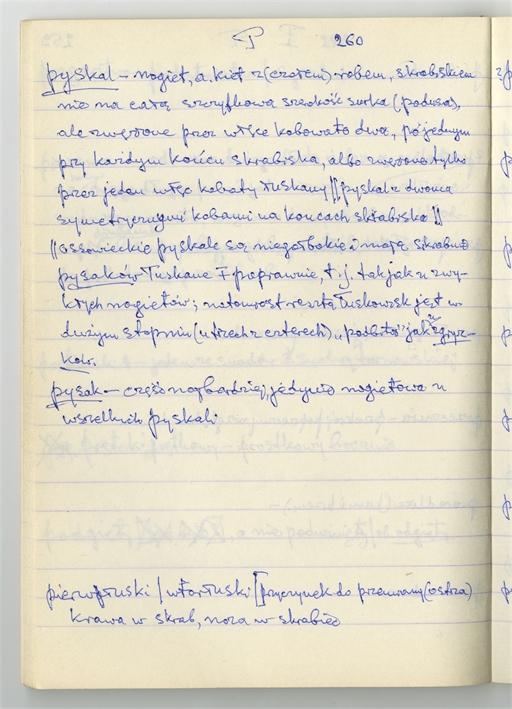 P 260
pyskal – nogieł, a. kieł z (czołem) robem, skrobiskiem
nie na całą szczytkową szerokość surka (podusa),
ale zwężone przez włske kobowato dwa, po jednym
przy każdym końcu skrabiska, albo zwężone tylko
przez jeden włsc kobaty łuskany || pyskal z dwoma
symetrycznymi kobami na końcach skrabiska ||
|| ossowieckie pyskale są niegołbokie i mają skrabno
pysaków łuskane I poprawnie, t.j. tak jak u zwy-
kłych nogiełów; natomiast reszta łuskowisk jest w
dużym stopniu (u trzech z czterech) „pobita" jak u zgryz-
ków.
pysak – część najbardziej, jedynie nogiełowa u
wszelkich pyskali.
pierwołuski / wtórłuski [ przyczynek do przemiany (ostrza)
krawa w skrab, noża w skrabieo